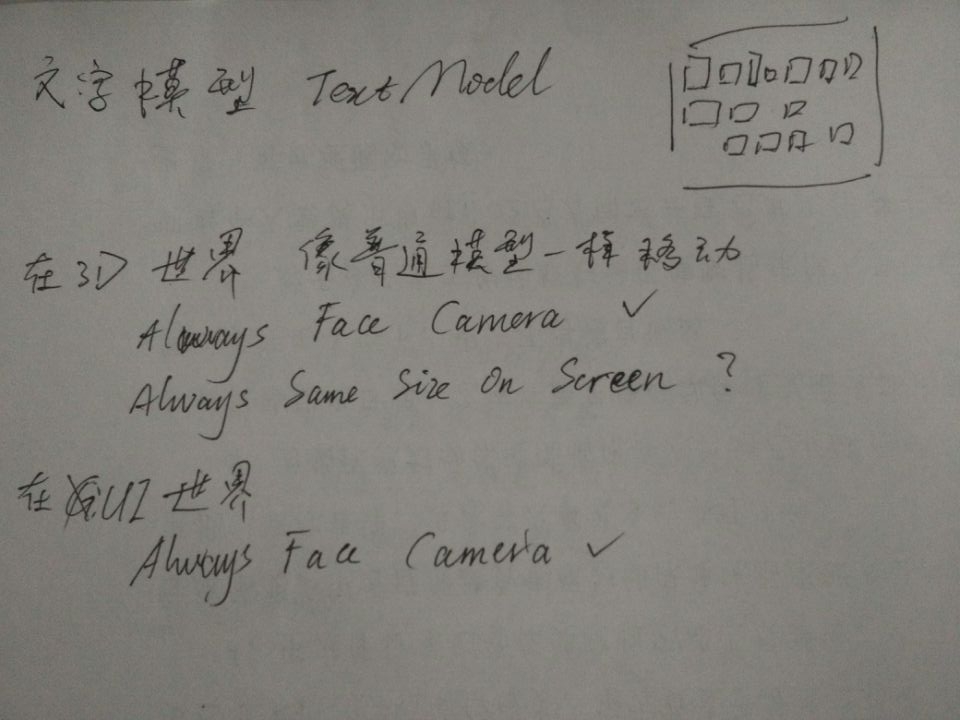 文字模型 Text Model
在3D世界 像普通模型一样移动
Always Face Camera ✓
Always Same Size On Screen ?
在UI世界
Always Face Camera ✓